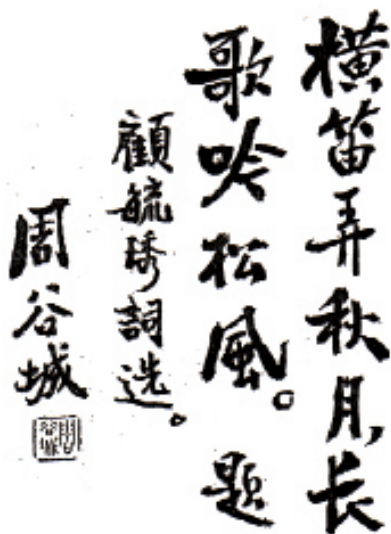 横笛弄秋月,长
歌吟松風。题
顧毓琇詞选。
周谷城